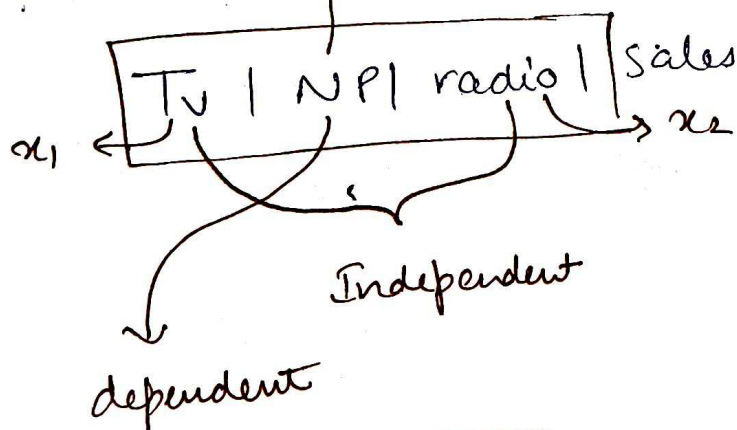 Tv | NP | radio | Sales
x1 x2
Independent
dependent